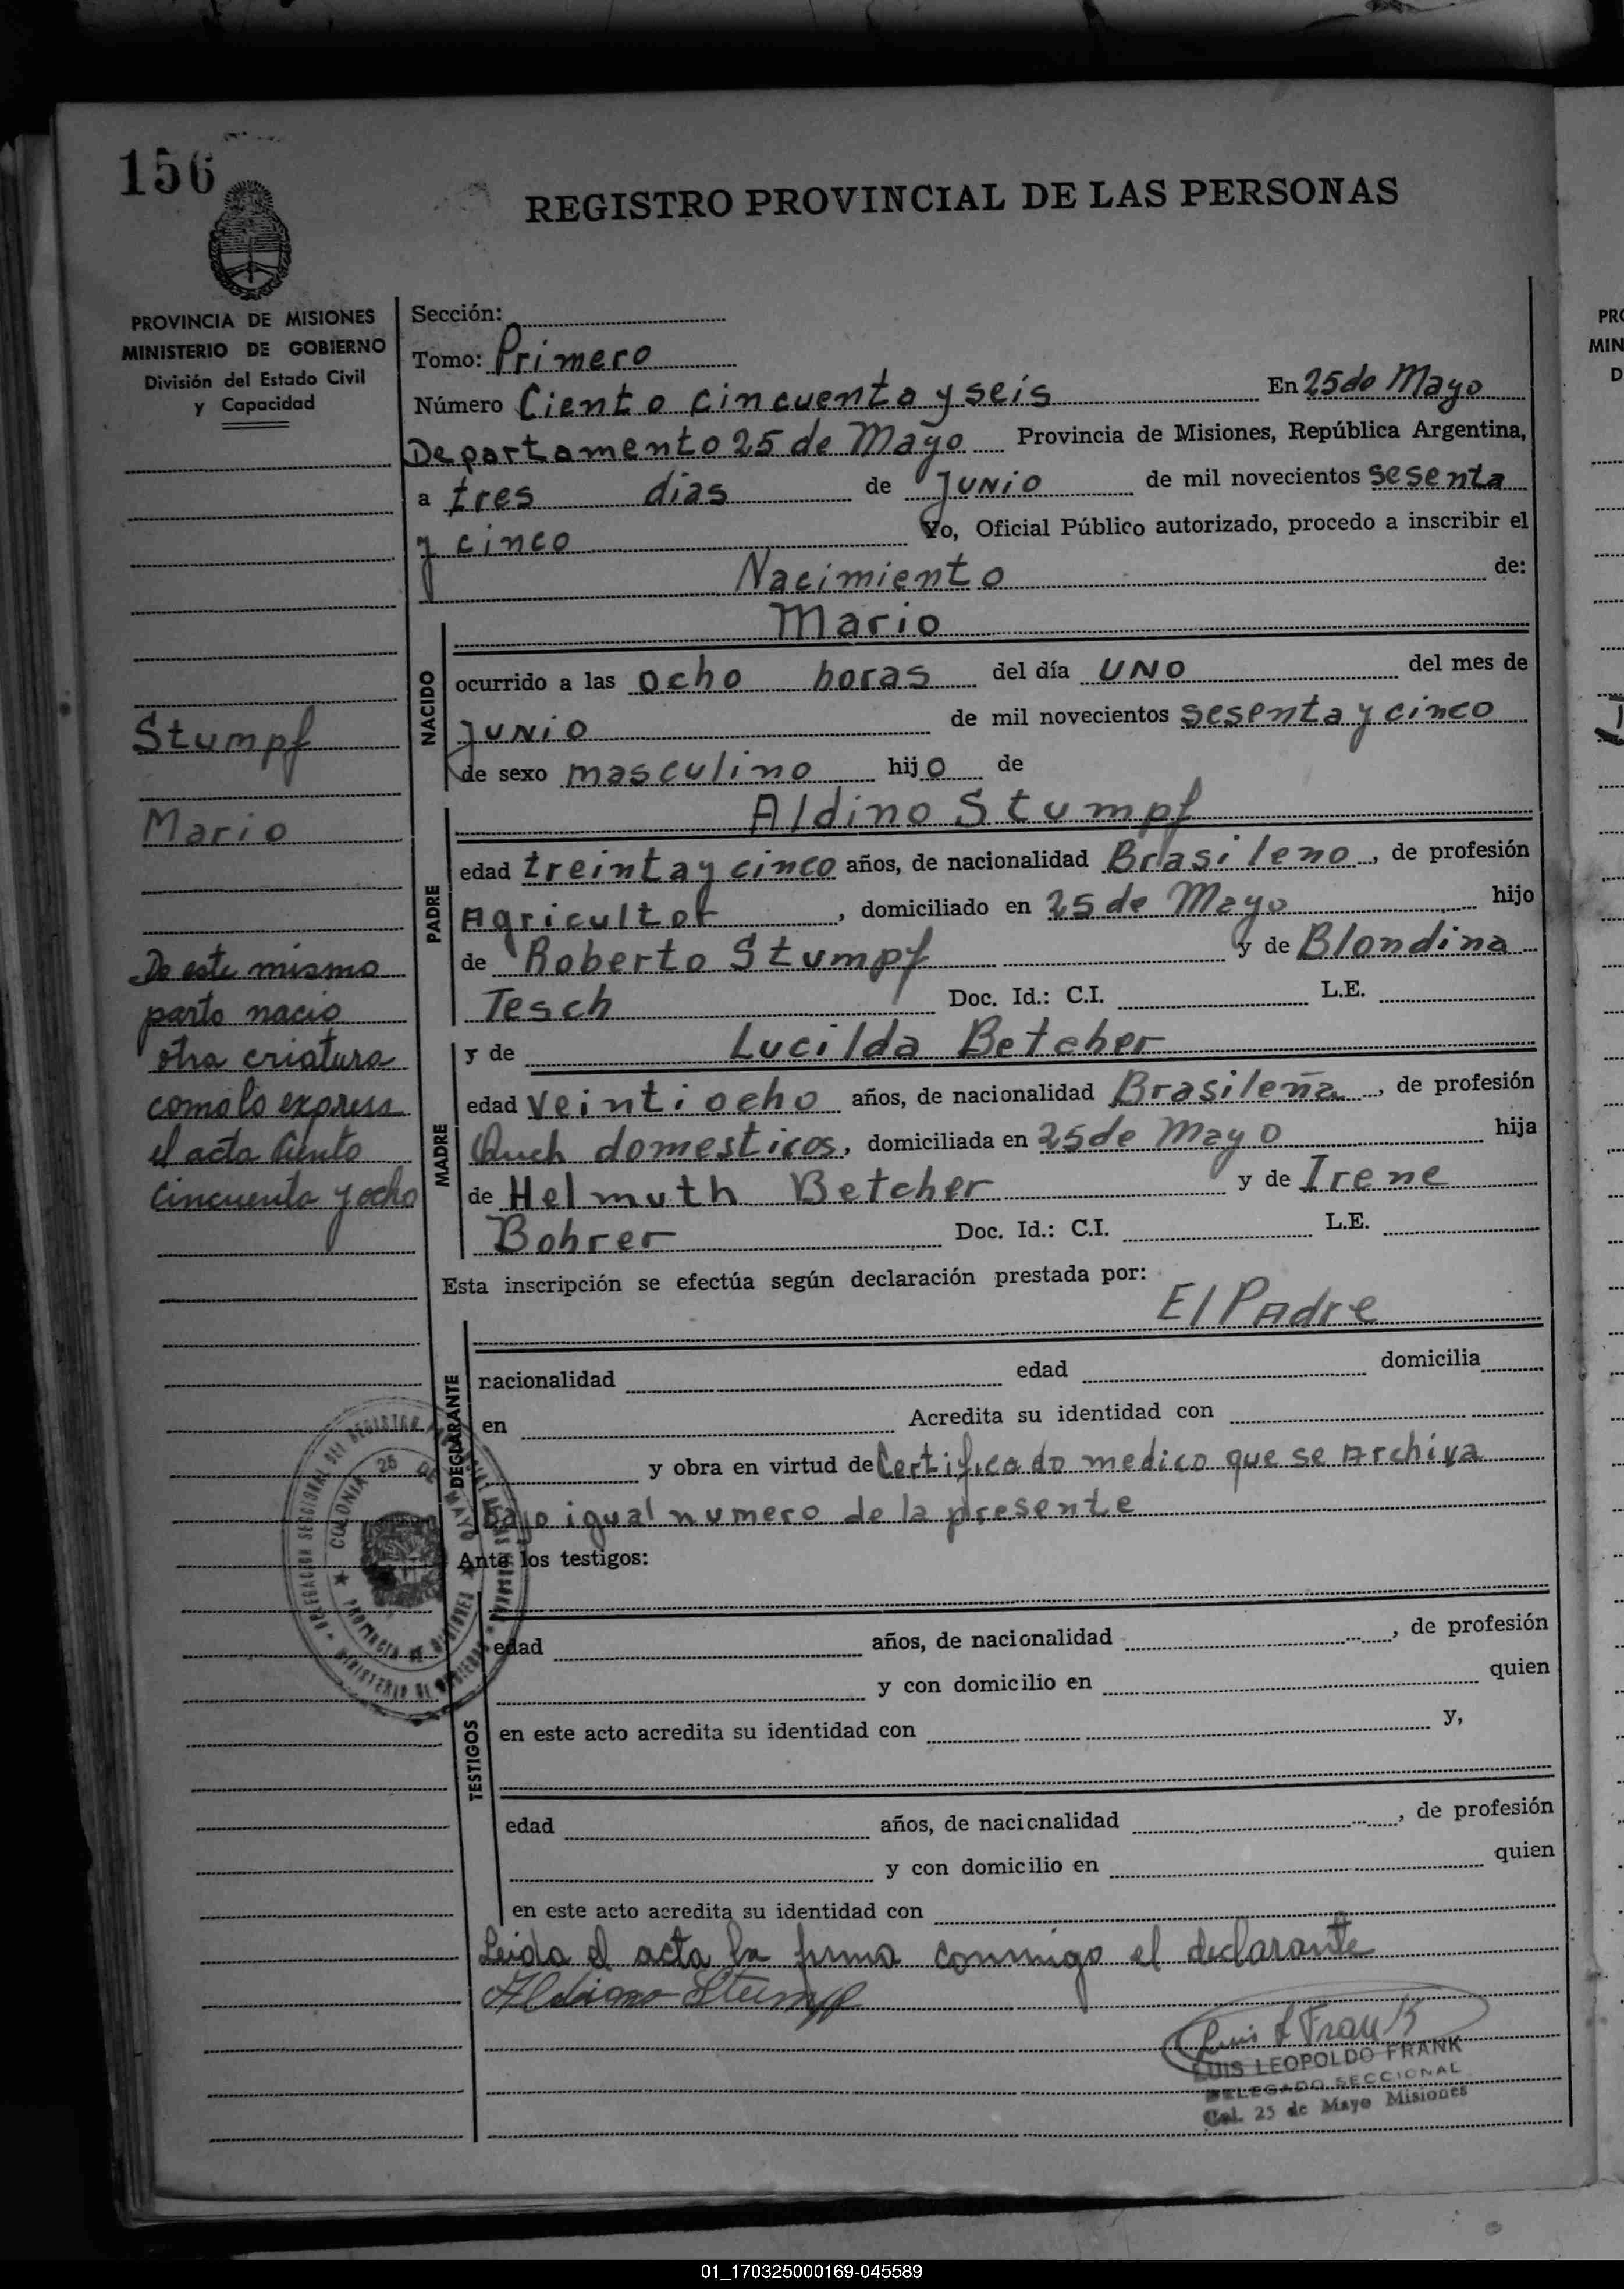 156
REGISTRO PROVINCIAL DE LAS PERSONAS
PROVINCIA DE MISIONES
MINISTERIO DE GOBIERNO
División del Estado Civil
y Capacidad
Stumpf
Mario
De este mismo
parto nacio
otra criatura
como lo expresa
el acta Ciento
Cincuenta y ocho
Sección:
Tomo: Primero
Número Ciento cincuenta y seis En 25 de Mayo
Departamento 25 de Mayo Provincia de Misiones, República Argentina,
a tres dias de Junio de mil novecientos sesenta
y cinco Yo, Oficial Público autorizado, procedo a inscribir el
Nacimiento de:
Mario
NACIDO
ocurrido a las ocho horas del día uno del mes de
Junio de mil novecientos sesenta y cinco
de sexo masculino hijo de
Aldino Stumpf
PADRE
edad treinta y cinco años, de nacionalidad Brasileno, de profesión
Agricultor, domiciliado en 25 de Mayo hijo
de Roberto Stumpf y de Blondina
Tesch Doc. Id.: C.I. L.E.
y de Lucilda Betcher
MADRE
edad Veinti ocho años, de nacionalidad Brasileña, de profesión
domesticos, domiciliada en 25 de Mayo hija
de Helmuth Betcher y de Irene
Bohrer Doc. Id.: C.I. L.E.
Esta inscripción se efectúa según declaración prestada por:
El Padre
DECLARANTE
nacionalidad edad domicilia
en Acredita su identidad con
y obra en virtud de Certificado medico que se Archiva
Bajo igual numero de la presente
COLONIA 25 DE MAYO
PROVINCIA DE MISIONES
Ante los testigos:
TESTIGOS
edad años, de nacionalidad , de profesión
y con domicilio en quien
en este acto acredita su identidad con y,
edad años, de nacionalidad , de profesión
y con domicilio en quien
en este acto acredita su identidad con
Leida el acta la firma conmigo el declarante
Aldino Stumpf
Luis L Frank
LUIS LEOPOLDO FRANK
DELEGADO SECCIONAL
Col. 25 de Mayo Misiones
PRO
MIN
D
01_170325000169-045589